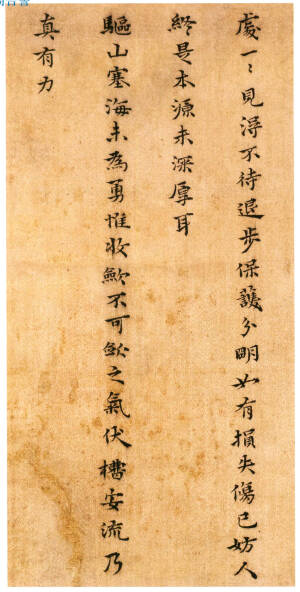 處一〻見得不待退步保護分明如有損失傷已妨人
終是本源未深厚耳
驅山塞海未為勇惟收斂不可斂之氣伏槽安流乃
真有力